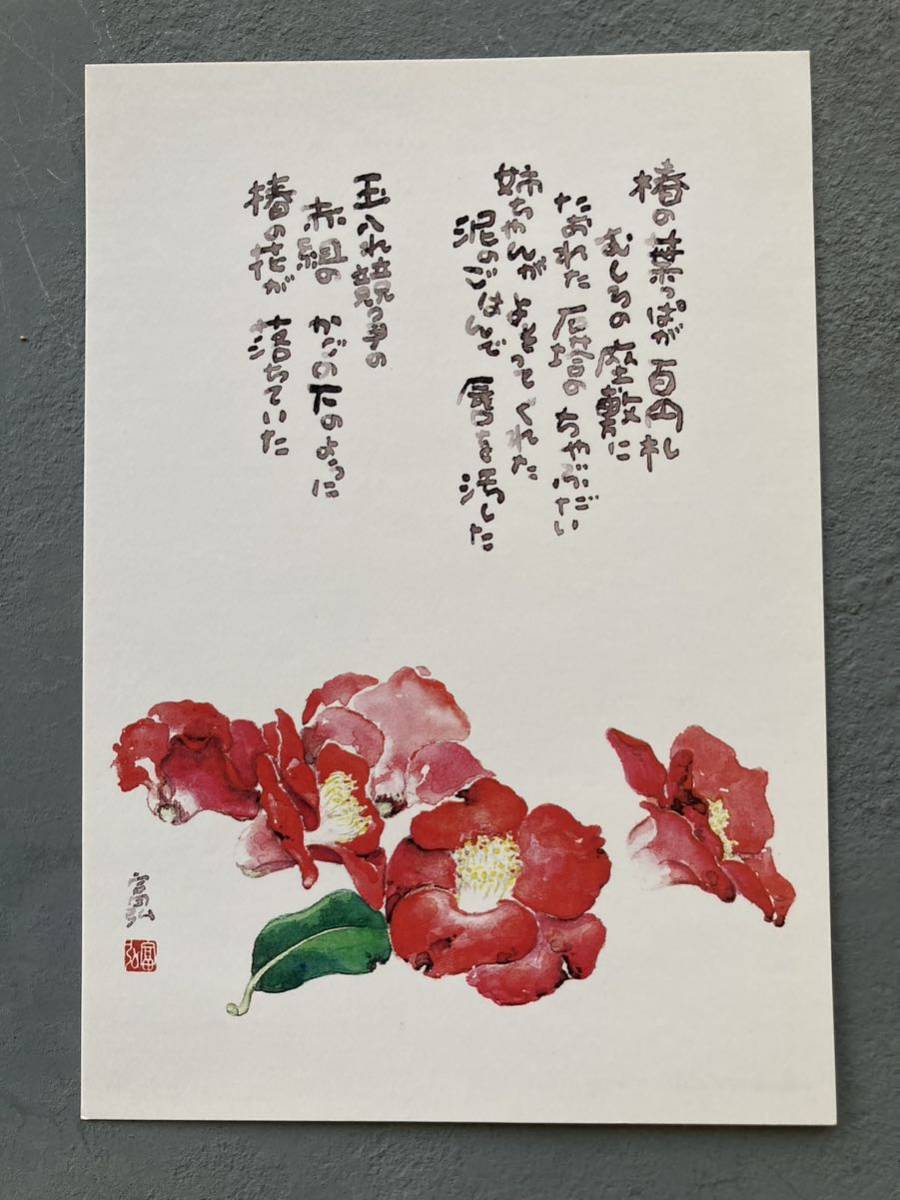 椿の葉っぱが 百円札
むしろの座敷に
たおれた 石塔の ちゃぶだい
姉ちゃんが よそってくれた
泥のごはんで 唇を汚した
玉入れ競争の
赤組の かごの下のように
椿の花が 落ちていた
富弘
富弘